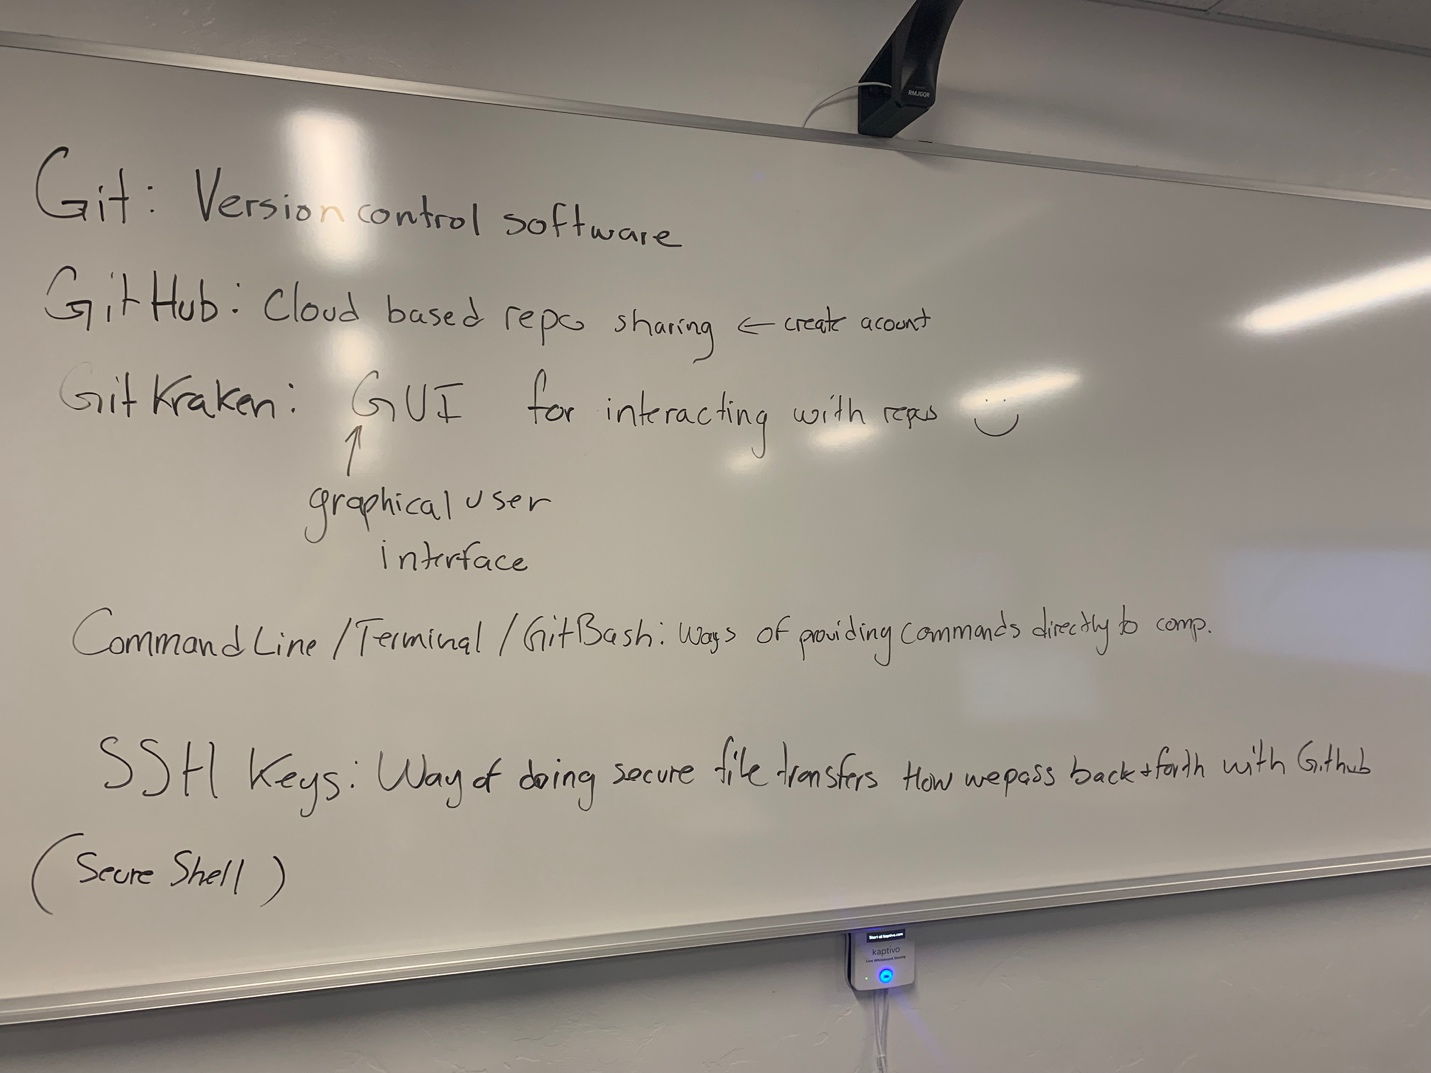 Git: Version control software
GitHub: Cloud based repo sharing ← create acount
GitKraken: GUI for interacting with repos
↑
graphical user
interface
Command Line / Terminal / GitBash: Ways of providing commands directly to comp.
SSH Keys: Way of doing secure file transfers How we pass back + forth with Github
(Secure Shell)
RMJGQR
kaptivo